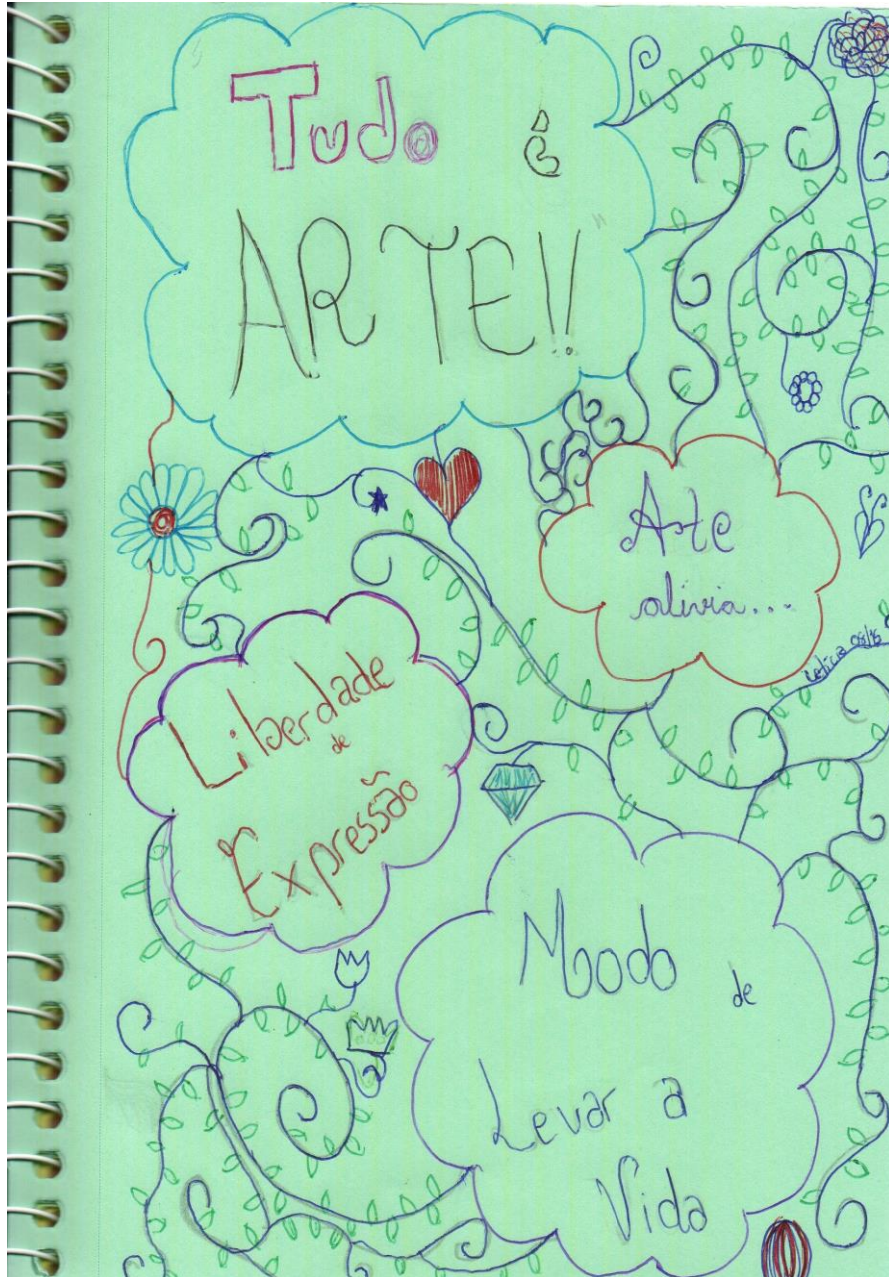 Tudo é
ARTE!!
Arte
alivia...
Leticia 09/15
Liberdade
de
Expressão
Modo de
Levar a
Vida